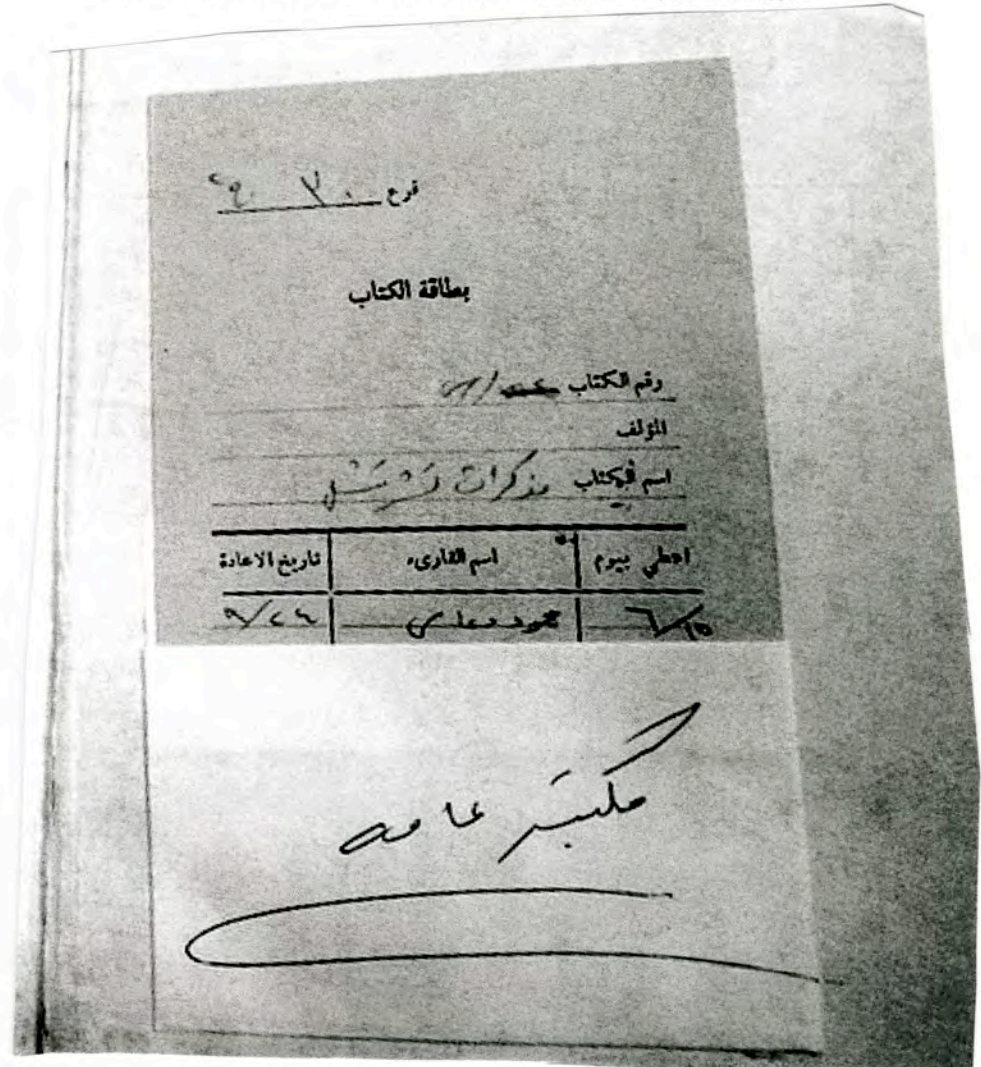 فرع ٣٠
بطاقة الكتاب
رقم الكتاب
المؤلف
اسم الكتاب مذكرات تشرتشل
اعطي بيوم اسم القارىء تاريخ الاعادة
٦/١٥ محمود ٩/٢٤
مكتبة عامه